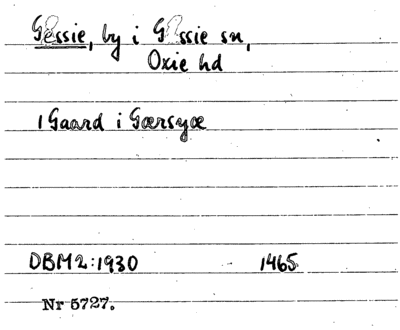 Gessie, by i Gessie sn,
Oxie hd
1 Gaard i Gærsyæ
DBM2:1930 1465
Nr 5727.